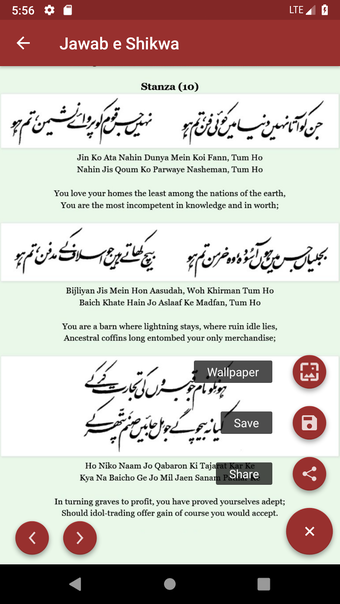 5:56
LTE
Jawab e Shikwa
Stanza (10)
جن کو آتا نہیں دنیا میں کوئی فن، تم ہو
نہیں جس قوم کو پروائے نشیمن، تم ہو
Jin Ko Ata Nahin Dunya Mein Koi Fann, Tum Ho
Nahin Jis Qoum Ko Parwaye Nasheman, Tum Ho
You love your homes the least among the nations of the earth,
You are the most incompetent in knowledge and in worth;
بجلیاں جس میں ہوں آسودہ وہ خرمن، تم ہو
بیچ کھاتے ہیں جو اسلاف کے مدفن، تم ہو
Bijliyan Jis Mein Hon Aasudah, Woh Khirman Tum Ho
Baich Khate Hain Jo Aslaaf Ke Madfan, Tum Ho
You are a barn where lightning stays, where ruin idle lies,
Ancestral coffins long entombed your only merchandise;
ہو نکو نام جو قبروں کی تجارت کر کے
Wallpaper
کیا نہ بیچو گے جو مل جائیں صنم پتھر کے
Save
Ho Niko Naam Jo Qabaron Ki Tajarat Kar Ke
Kya Na Baicho Ge Jo Mil Jaen Sanam
Share
In turning graves to profit, you have proved yourselves adept;
Should idol-trading offer gain of course you would accept.